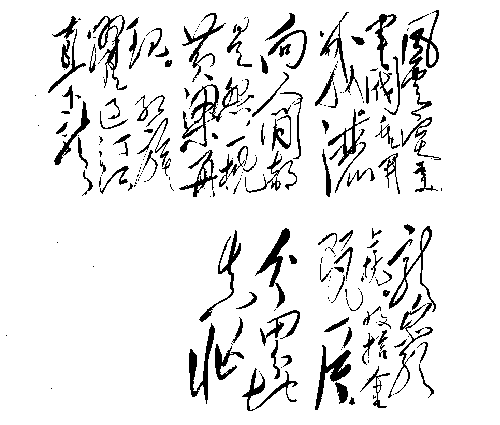 風雲突變
軍閥重開
战洒
向人间都
是怨一枕
黄粱再
现。红旗
躍过汀江
直下龙
龙巖
上杭。收拾金
瓯一片。
分田分地
真忙